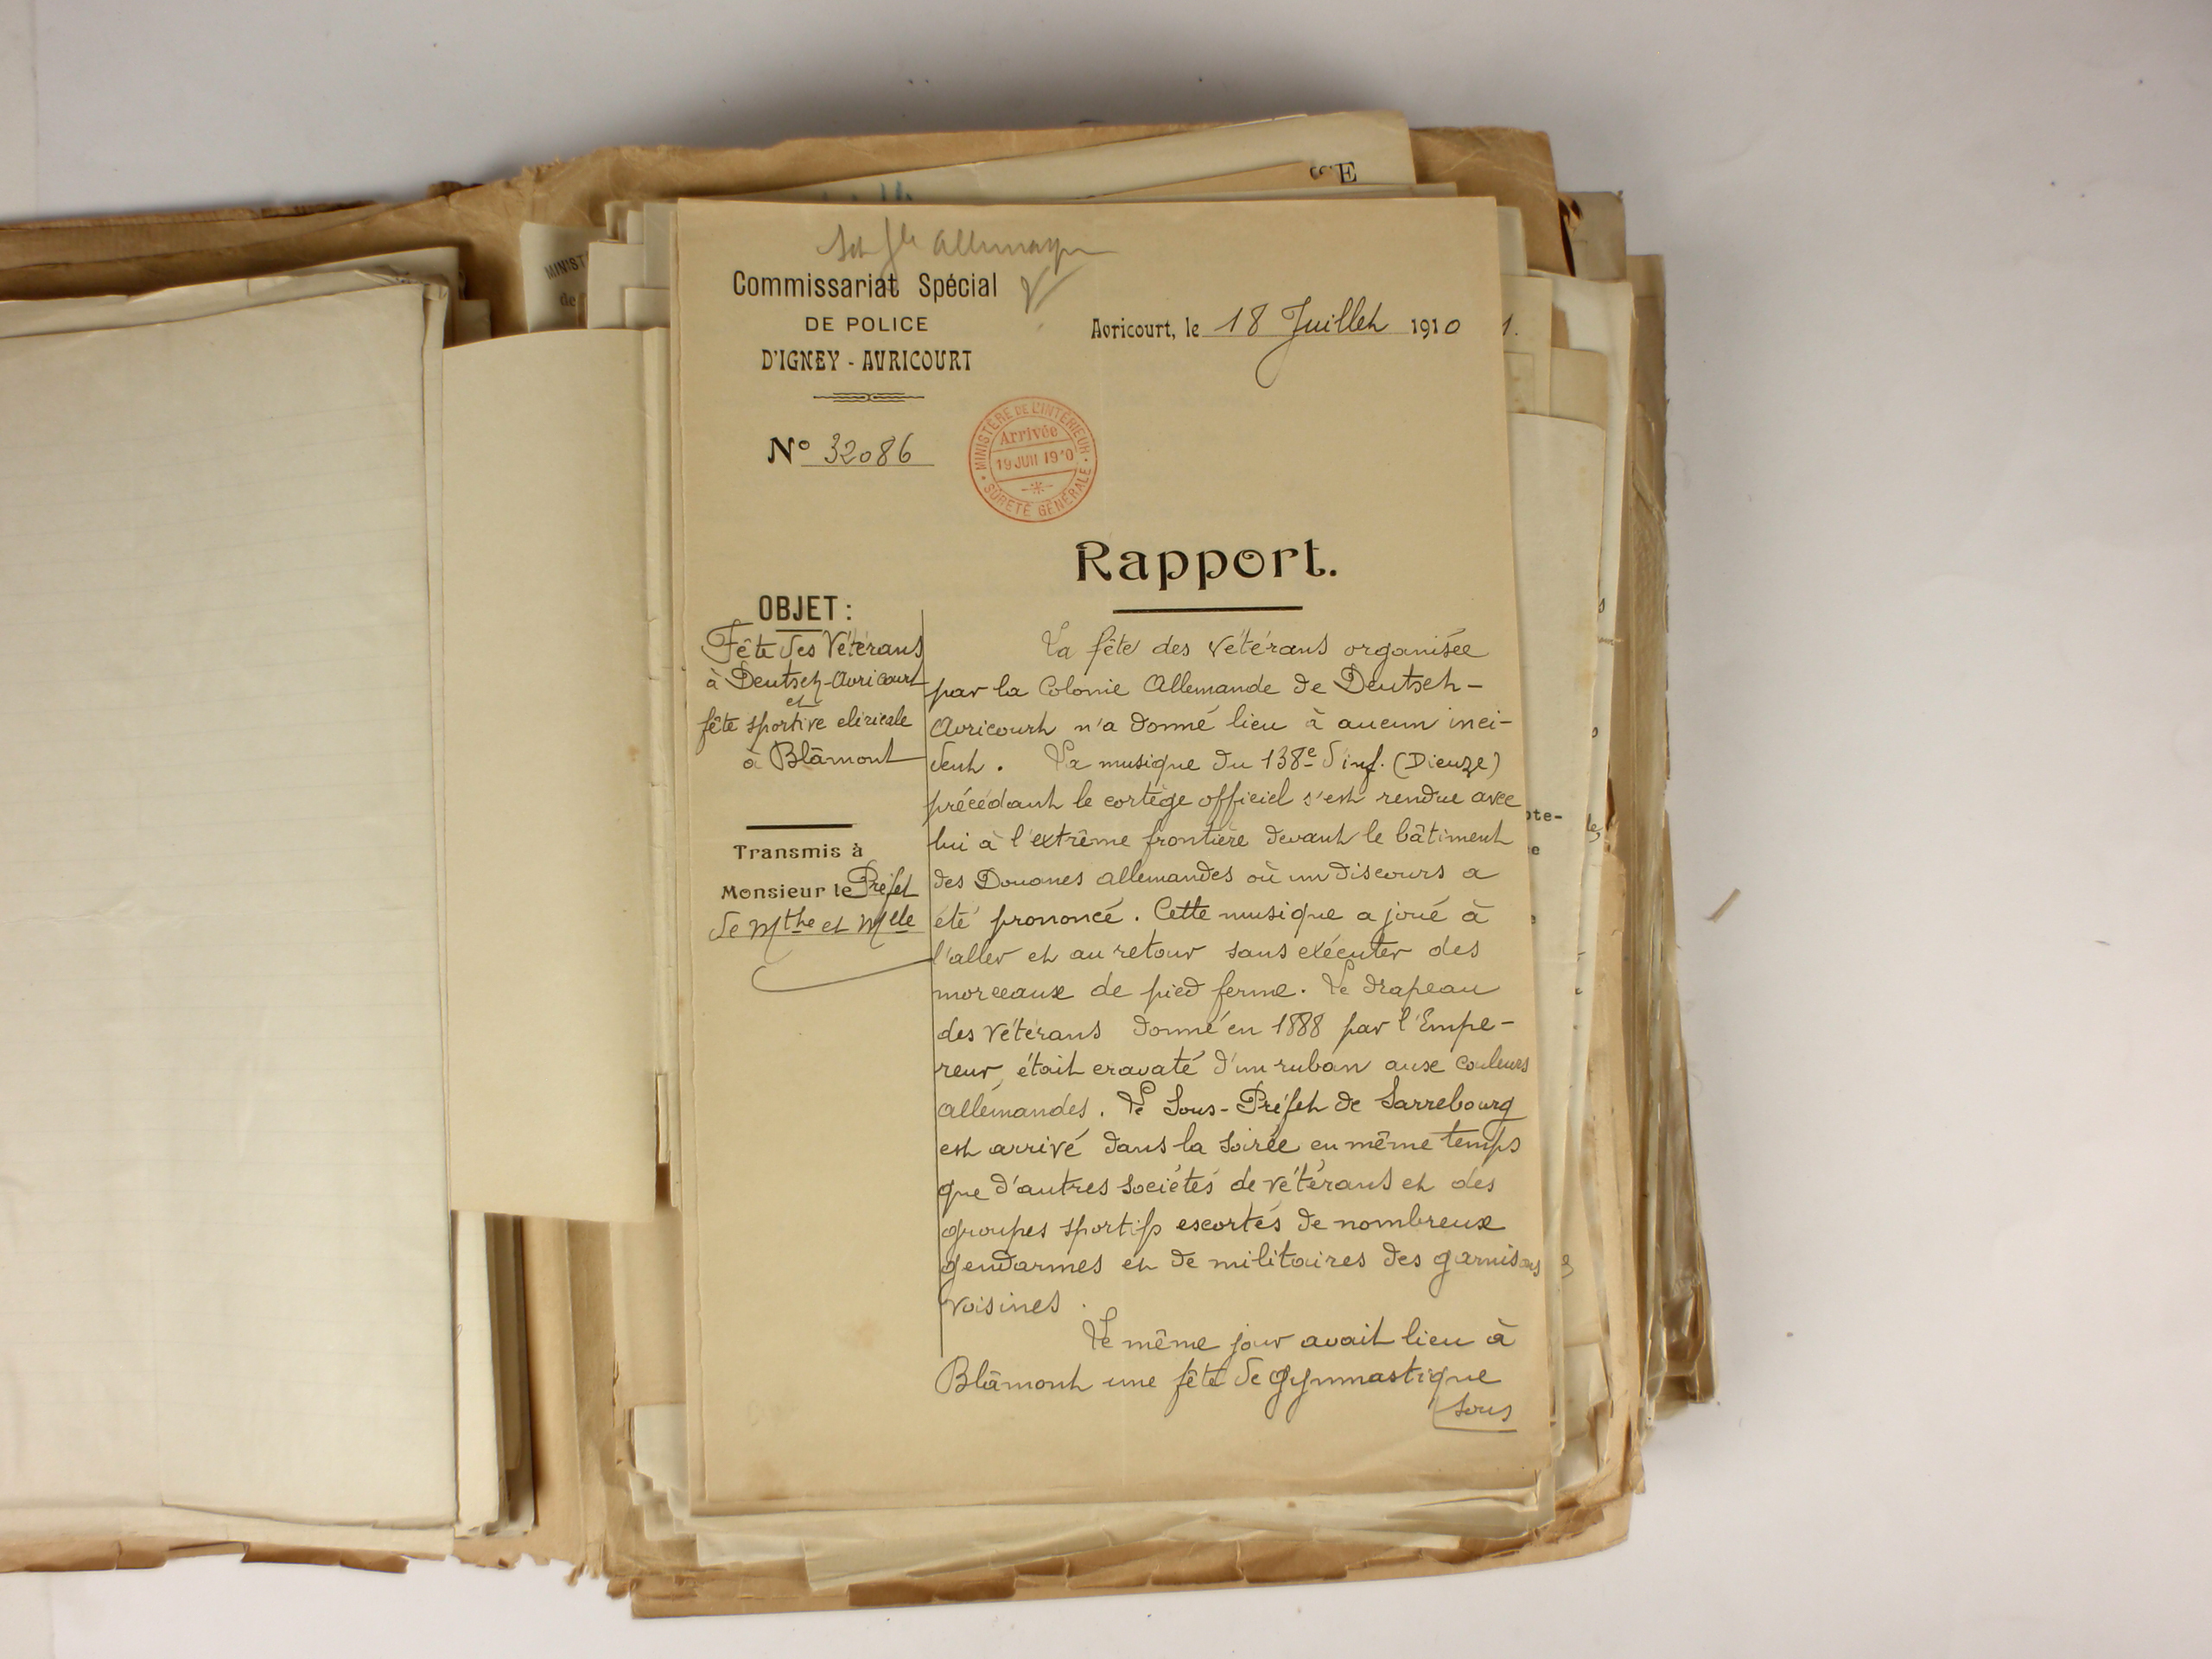 Allemagne
Commissariat Spécial
DE POLICE
D'IGNEY - AVRICOURT
Avricourt, le 18 Juillet 1910
N° 32086
MINISTÈRE DE L'INTÉRIEUR
Arrivée
19 JUIL 1910
SÛRETÉ GÉNÉRALE
Rapport.
OBJET :
Fête des Vétérans
à Deutsch-Avricourt
et
fête sportive cléricale
à Blâmont
Transmis à
Monsieur le Préfet
de Mthe et Mlle
La fête des vétérans organisée
par la Colonie Allemande de Deutsch-
Avricourt n'a donné lieu à aucun inci-
dent. La musique du 138e d'inf. (Dieuze)
précédant le cortège officiel s'est rendue avec
lui à l'extrême frontière devant le bâtiment
des Douanes allemandes où un discours a
été prononcé. Cette musique a joué à
l'aller et au retour sans exécuter des
morceaux de pied ferme. Le drapeau
des vétérans donné en 1888 par l'Empe-
reur, était cravaté d'un ruban aux couleurs
allemandes. Le Sous-Préfet de Sarrebourg
est arrivé dans la soirée en même temps
que d'autres sociétés de vétérans et des
groupes sportifs escortés de nombreux
gendarmes et de militaires des garnisons
voisines.
Le même jour avait lieu à
Blâmont une fête de gymnastique
sous